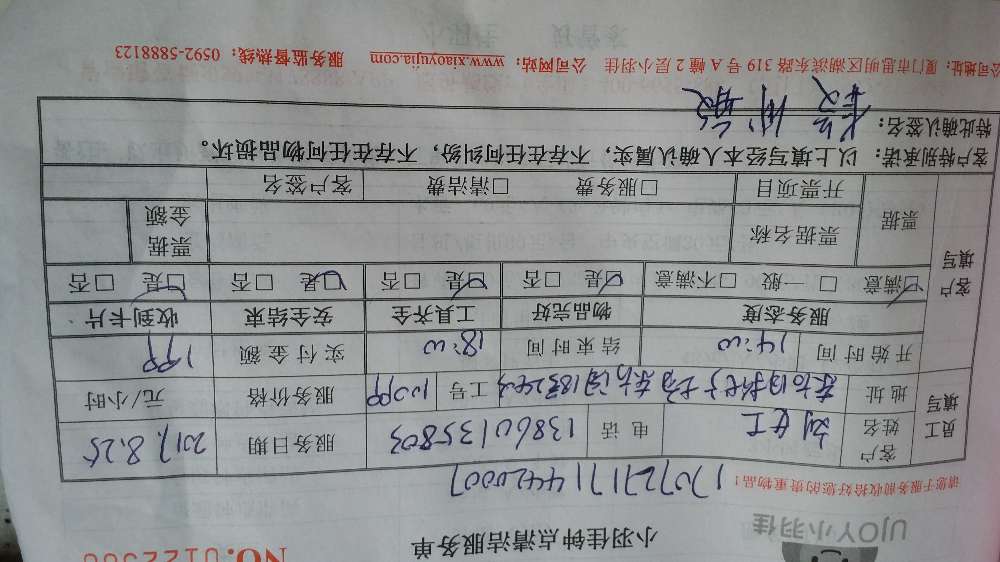 UJOY小羽佳
小羽佳钟点清洁服务单
NO.0122588
请您于服务前收拾好您的贵重物品!
17072717144420007
员工填写
客户姓名 刘女士 电话 13860135803 服务日期 2017.8.25
地址 工号 服务价格 元/小时
开始时间 14:00 结束时间 18:00 实付金额 199
客户填写
服务态度 物品完好 工具齐全 安全结束 收到卡片
满意 一般 不满意 是 否 是 否 是 否 是 否
票据 票据名称 票据金额
开票项目 服务费 清洁费 客户签名
客户特别承诺:以上填写经本人确认属实,不存在任何纠纷,不存在任何物品损坏。
特此确认签名:
公司地址:厦门市思明区湖滨东路319号A幢2层小羽佳 公司网站:www.xiaoyujia.com 服务监督热线:0592-5888123